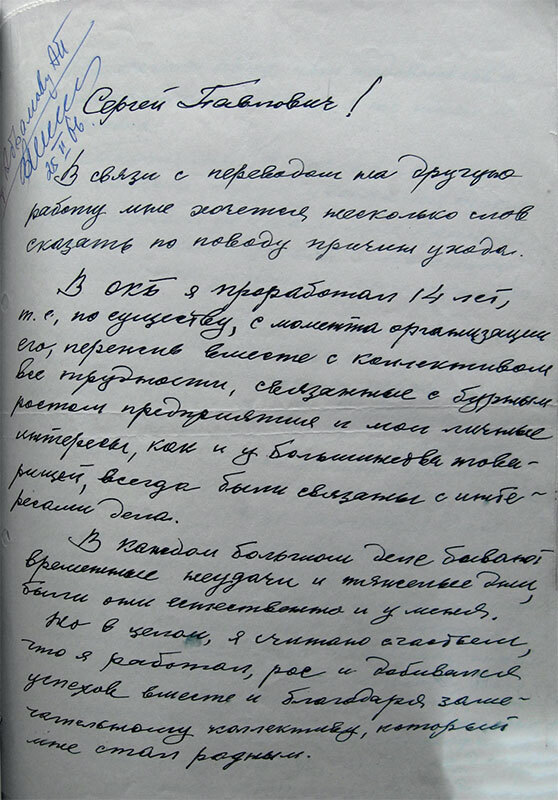 Абрамову АП
25 II 66.
Сергей Павлович!
В связи с переводом на другую
работу мне хочется несколько слов
сказать по поводу причин ухода.
В ОКБ я проработал 14 лет,
т.е, по существу, с момента организации
его, пережив вместе с коллективом
все трудности, связанные с бурным
ростом предприятия и мои личные
интересы, как и у большинства това-
рищей, всегда были связаны с инте-
ресами дела.
В каждом большом деле бывают
временные неудачи и тяжелые дни,
были они естественно и у меня.
Но в целом, я считаю счастьем,
что я работал, рос и добивался
успехов вместе и благодаря заме-
чательному коллективу, который
мне стал родным.